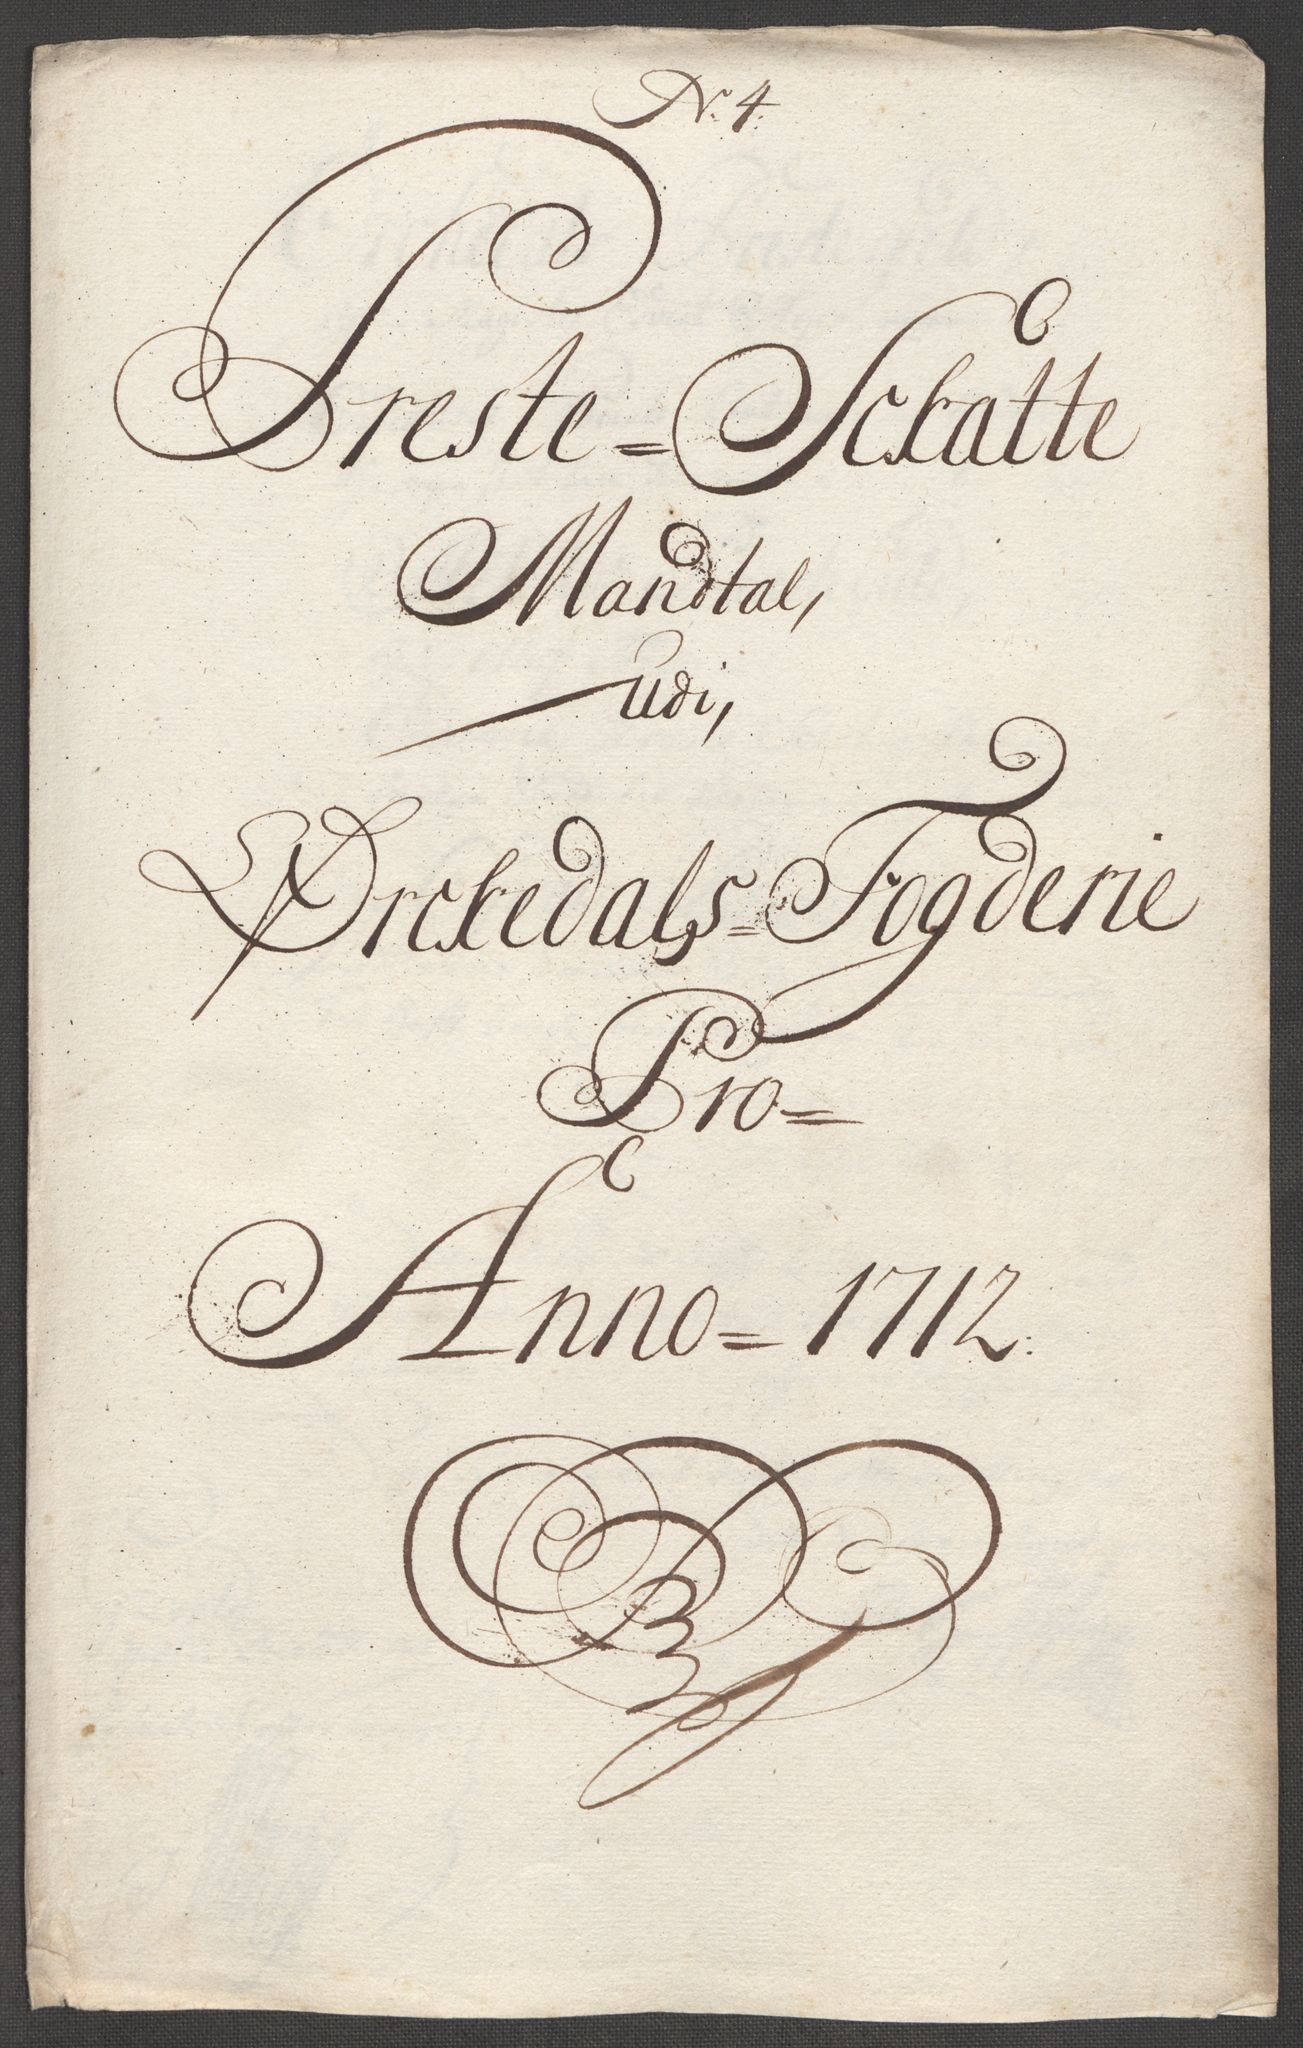 N. 4.
Preste=Sckatte
Mandtal,
udi,
Ørckedals=Fogderie
Pro=
Anno=1712.